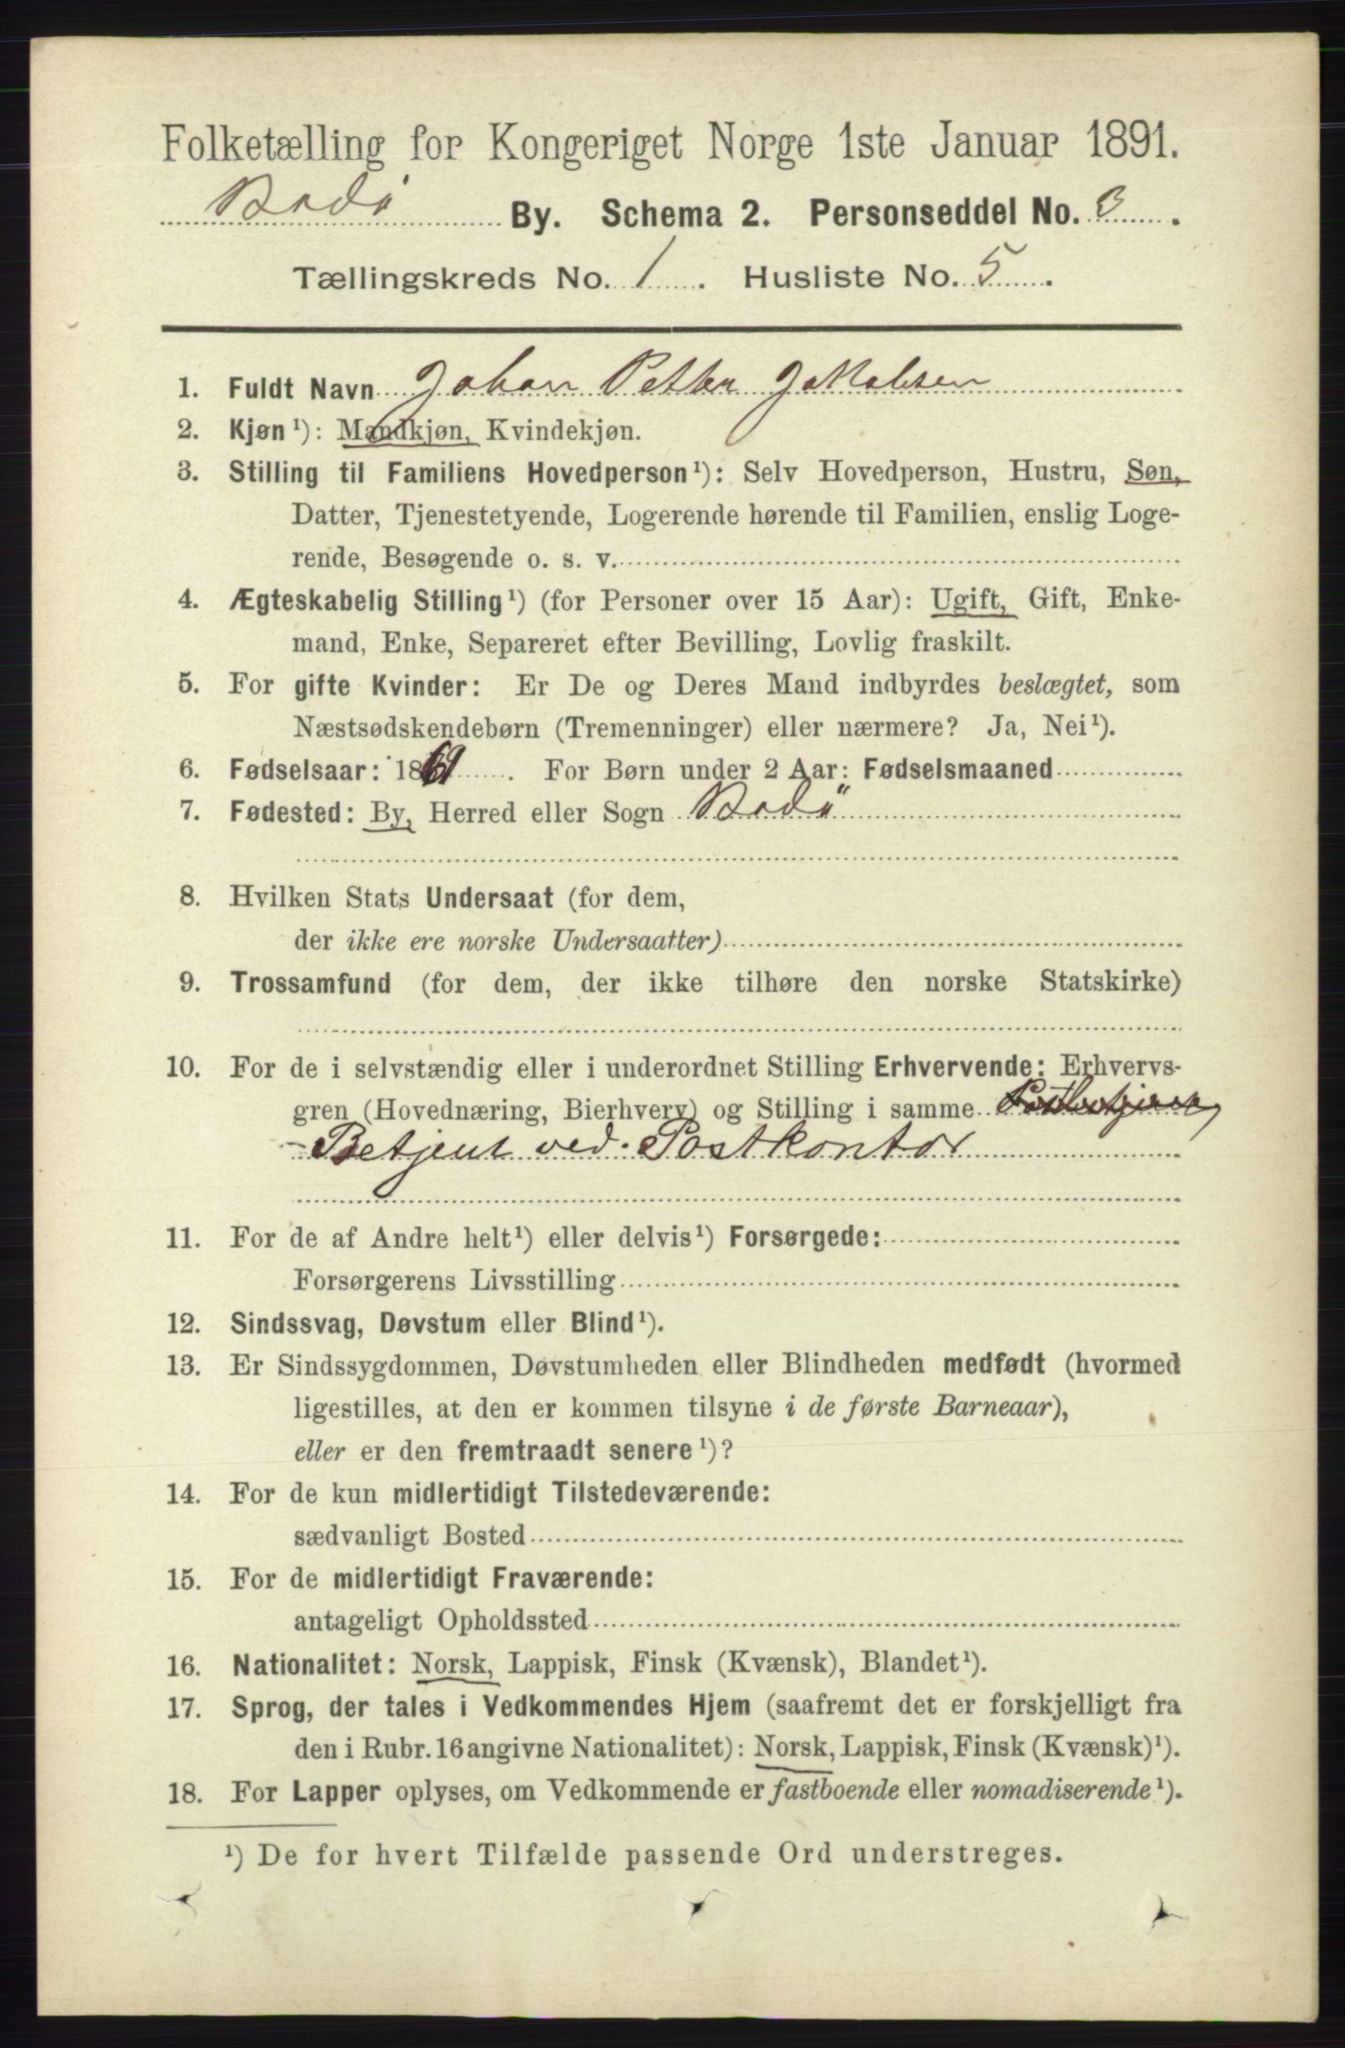 Folketælling for Kongeriget Norge 1ste Januar 1891.
Bodø By. Schema 2. Personseddel No. 3.
Tællingskreds No. 1. Husliste No. 5.
1. Fuldt Navn Johan Petter Jakobsen
2. Kjøn¹): Mandkjøn, Kvindekjøn.
3. Stilling til Familiens Hovedperson¹): Selv Hovedperson, Hustru, Søn,
Datter, Tjenestetyende, Logerende hørende til Familien, enslig Loge-
rende, Besøgende o. s. v.
4. Ægteskabelig Stilling¹) (for Personer over 15 Aar): Ugift, Gift, Enke-
mand, Enke, Separeret efter Bevilling, Lovlig fraskilt.
5. For gifte Kvinder: Er De og Deres Mand indbyrdes beslægtet, som
Næstsødskendebørn (Tremenninger) eller nærmere? Ja, Nei¹).
6. Fødselsaar: 1869. For Børn under 2 Aar: Fødselsmaaned
7. Fødested: By, Herred eller Sogn Bodø
8. Hvilken Stats Undersaat (for dem,
der ikke ere norske Undersaatter)
9. Trossamfund (for dem, der ikke tilhøre den norske Statskirke)
10. For de i selvstændig eller i underordnet Stilling Erhvervende: Erhvervs-
gren (Hovednæring, Bierhverv) og Stilling i samme
Betjent ved Postkontor
11. For de af Andre helt¹) eller delvis¹) Forsørgede:
Forsørgerens Livsstilling
12. Sindssvag, Døvstum eller Blind¹).
13. Er Sindssygdommen, Døvstumheden eller Blindheden medfødt (hvormed
ligestilles, at den er kommen tilsyne i de første Barneaar),
eller er den fremtraadt senere¹)?
14. For de kun midlertidigt Tilstedeværende:
sædvanligt Bosted
15. For de midlertidigt Fraværende:
antageligt Opholdssted
16. Nationalitet: Norsk, Lappisk, Finsk (Kvænsk), Blandet¹).
17. Sprog, der tales i Vedkommendes Hjem (saafremt det er forskjelligt fra
den i Rubr. 16 angivne Nationalitet): Norsk, Lappisk, Finsk (Kvænsk)¹).
18. For Lapper oplyses, om Vedkommende er fastboende eller nomadiserende¹).
¹) De for hvert Tilfælde passende Ord understreges.